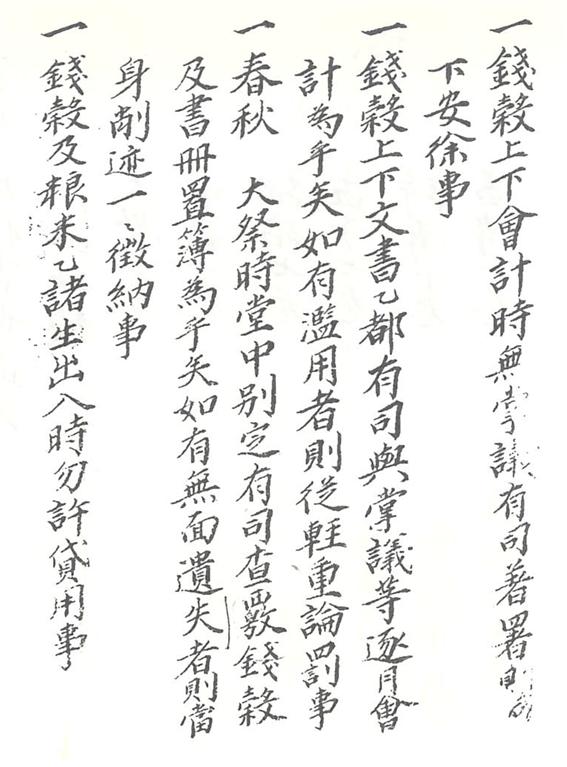 一 錢穀上下會計時無掌議有司著署則
下安徐事
一 錢穀上下文書乙都有司與掌議等逐月會
計為乎矣如有濫用者則從輕重論罰事
一 春秋 大祭時堂中別定有司查覈錢穀
及書冊置簿為乎矣如有無面遺失者則當
身削迹一〻徵納事
一 錢穀及粮米乙諸生出入時勿許貸用事